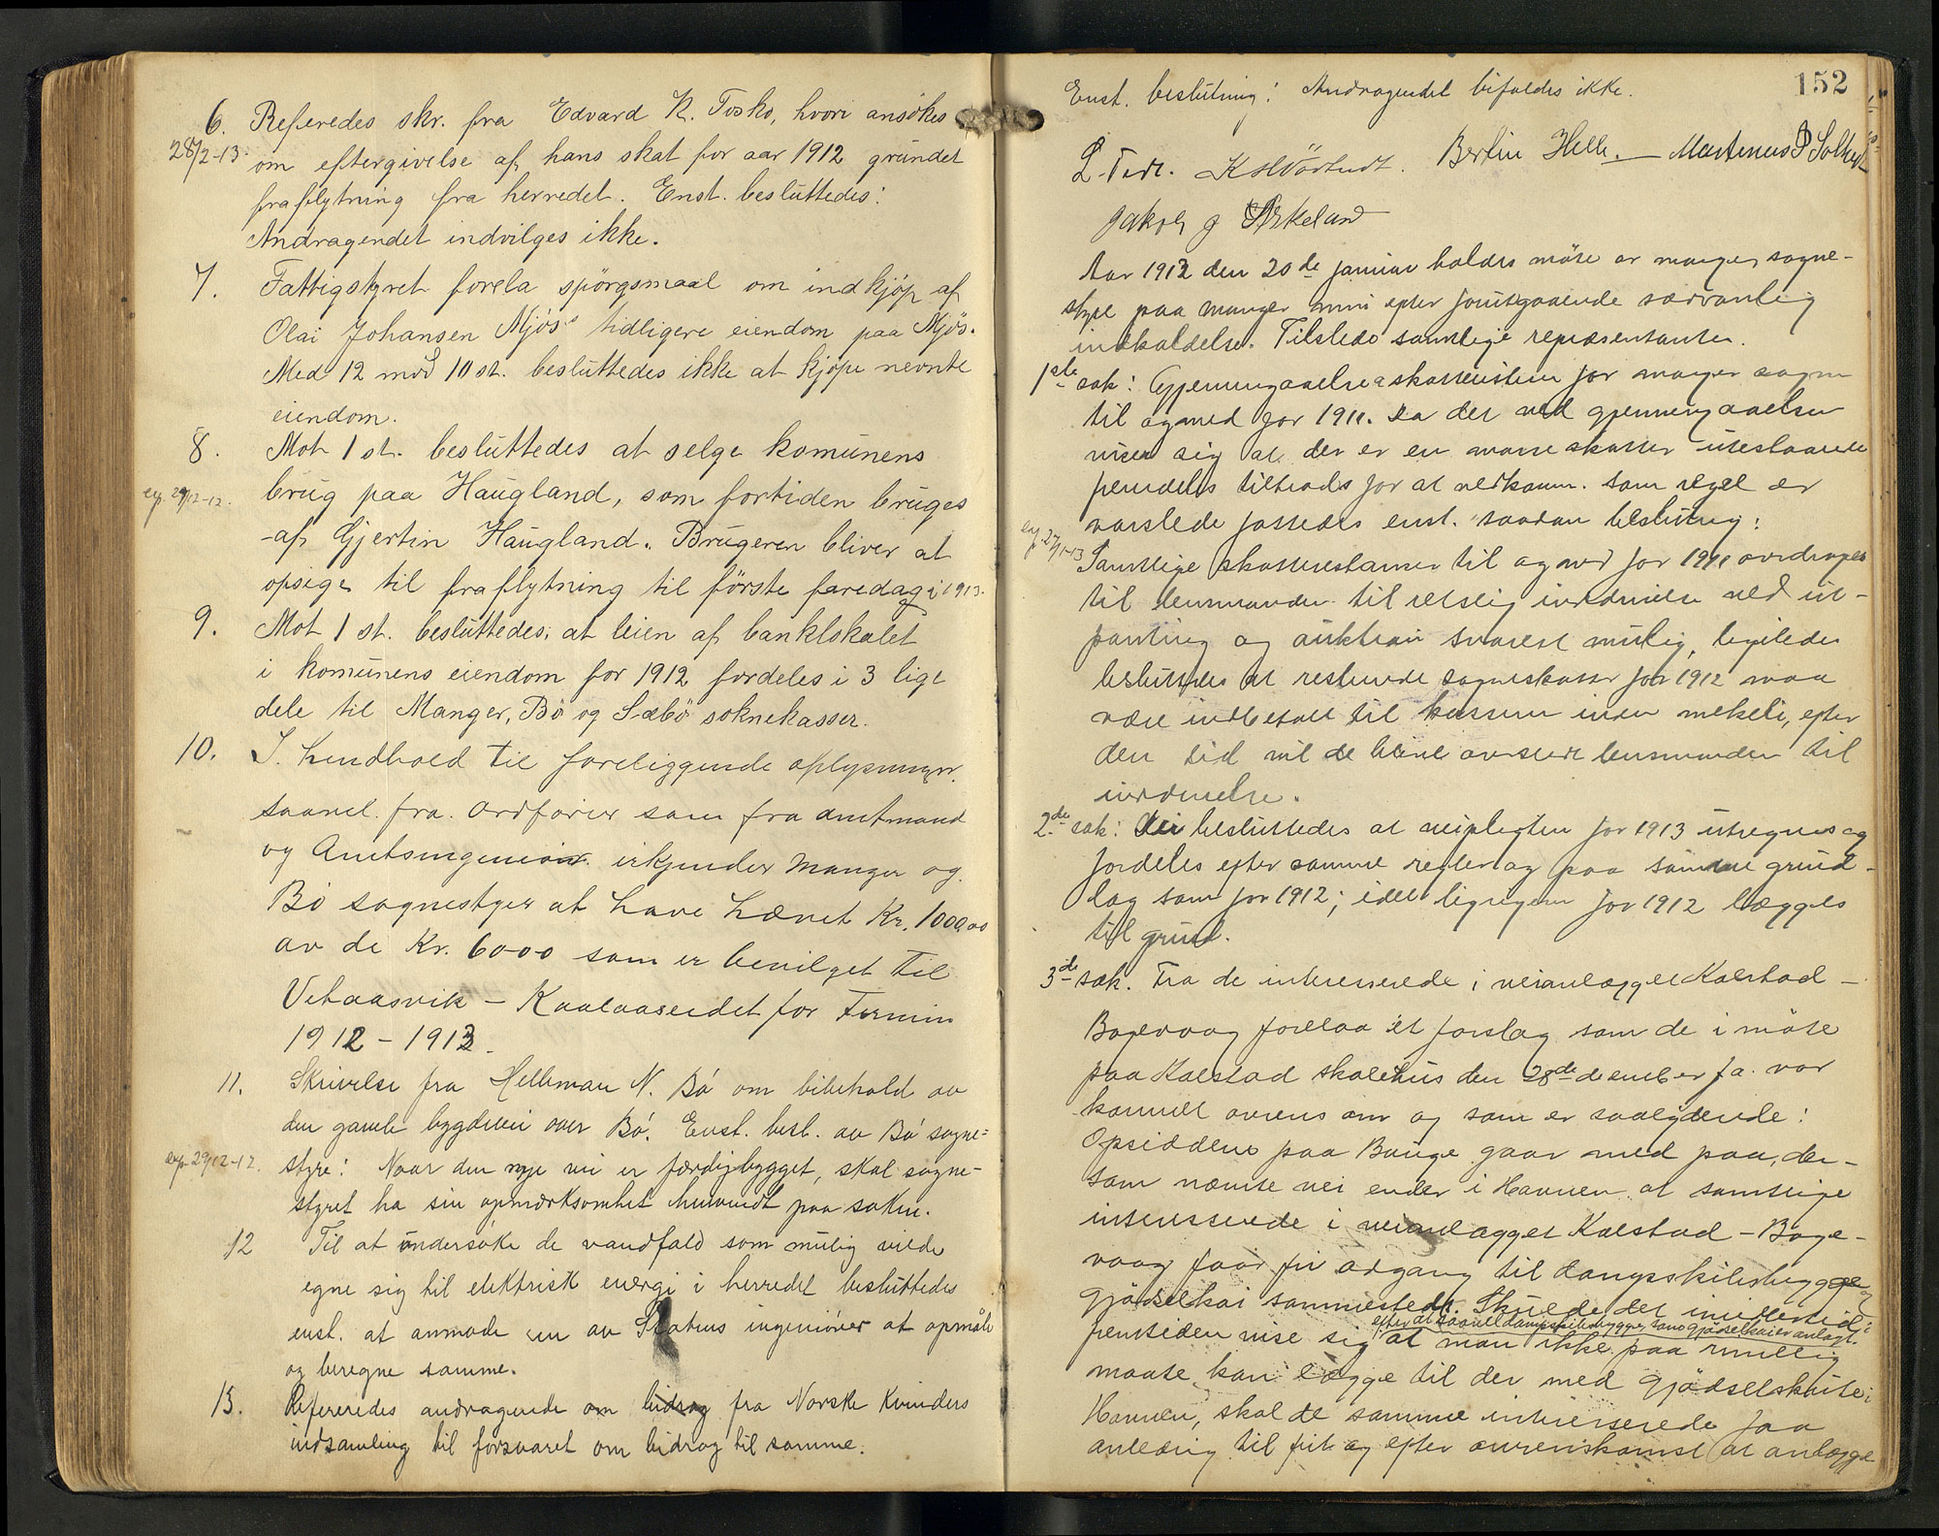 6. Referedes skr. fra Edvard K. Toska, hvori ansökes
28/2-13. om eftergivelse af hans skat for aar 1912 grundet
fraflytning fra herredet. Enst. besluttedes:
Andragendet indvilges ikke.
7. Fattigstyret forela spörgsmaal om indkjöp af
Olai Johansen Mjös's tidligere eiendom paa Mjös.
Med 12 mod 10 st. besluttedes ikke at kjöpe nevnte
eiendom.
8. Mot 1 st. besluttedes at selge komunens
exp. 29/12-12. brug paa Haugland, som fortiden bruges
af Gjertin Haugland. Brugeren bliver at
opsige til fraflytning til förste faredag i 1913.
9. Mot 1 st. besluttedes, at leien af banklokalet
i komunens eiendom for 1912 fordeles i 3 lige
dele til Manger, Bö og Sæbö soknekasser.
10. I henhold til foreliggende oplysninger
saavel fra ordförer som fra amtmand
og Amtsingeniör erkjender Manger og
Bö sognestyre at have hævet Kr. 1000,00
av de Kr. 6000 som er bevilget til
Vetaasvik - Kaalaaseidet for Termin
1912 - 1913.
11. Skrivelse fra Hellman N. Bö om bibehold av
den gamle bygdevei over Bö. Enst. besl. av Bö sogne-
exp 29/12-12. styre: Naar den nye vei er færdigbygget, skal sogne-
styret ha sin opmerksomhet henvendt paa saken.
12 Til at undersöke de vandfald som mulig vilde
egne sig til elektrisk energi i herredet besluttedes
enst. at anmode en av Statens ingeniörer at opmåle
og beregne samme.
13. Refereredes andragende om bidrag fra Norske Kvinders
indsamling til forsvaret om bidrag til samme.
152
Enst. beslutning: Andragendet bifaldes ikke.
Bertin Helle. Martinus
Jakob
Aar 1913 den 20de januar holdes möte av manger sogne-
styre paa manger efter forutgaaende sedvanlig
indkaldelse. Tilstede samtlige repræsentanter.
1ste sak: Gjennemgaaelse skatterestancen for manger sogn
til og med for 1911. Da det ved gjennemgaaelsen
viser sig at der er en masse skatter utestaaende
fremdeles tiltrods for at vedkomm. som regel er
varslede fattedes enst. saadan beslutning:
exp. 27/1-13 Samtlige skatterestancer til og med for 1911 overdrages
til lensmanden til retslig inddrivelse ved ut-
panting og auktion snarest mulig, ligeledes
besluttedes at resterende sogneskatter for 1912 maa
være indbetalt til kassereren inden, efter
den tid vil de bliver oversendt lensmanden til
inddrivelse.
2de sak: Det besluttedes at veiplegten for 1913 utregnes og
fordeles efter samme regler og paa samme grund-
lag som for 1912; idet ligningen for 1912 lægges
til grund.
3de sak. Fra de interesserede i veianlægget Kalstad -
Bogevaag forelaa et forslag som de i möte
paa Kalstad skolehus den 28de desember f.a. var
kommet overens om og som er saalydende:
Opsidderne paa Bauge gaar med paa, der-
som nævnte vei ender i Havnen at samtlige
interesserede i veianlægget Kalstad - Boge-
vaag faar fri adgang til dampskibsbrygge og
gjödselkai sammesteds. Skulde det imidlertid i
efter at saavel dampskibsbrygge som gjödselkaien anlagt.
fremtiden vise sig at man ikke paa rimelig
maate kan lægge til der med gjödselskuite i
Havnen, skal de samme interesserede faa
anledning til frit og efter overenskomst at anlægge